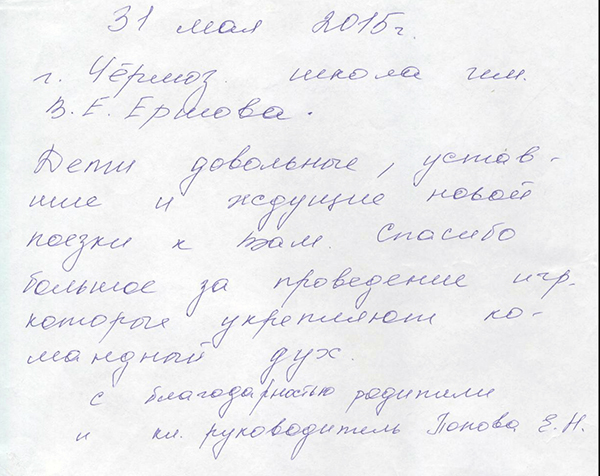 31 мая 2015г.
г. Чёрмоз. школа им.
В. Е. Ершова.
Дети довольные, устав-
шие и ждущие новой
поезки к Вам. Спасибо
большое за проведение игр.
которые укрепляют ко-
мандный дух.
с благодарностью родители
и кл. руководитель Попова Е. Н.